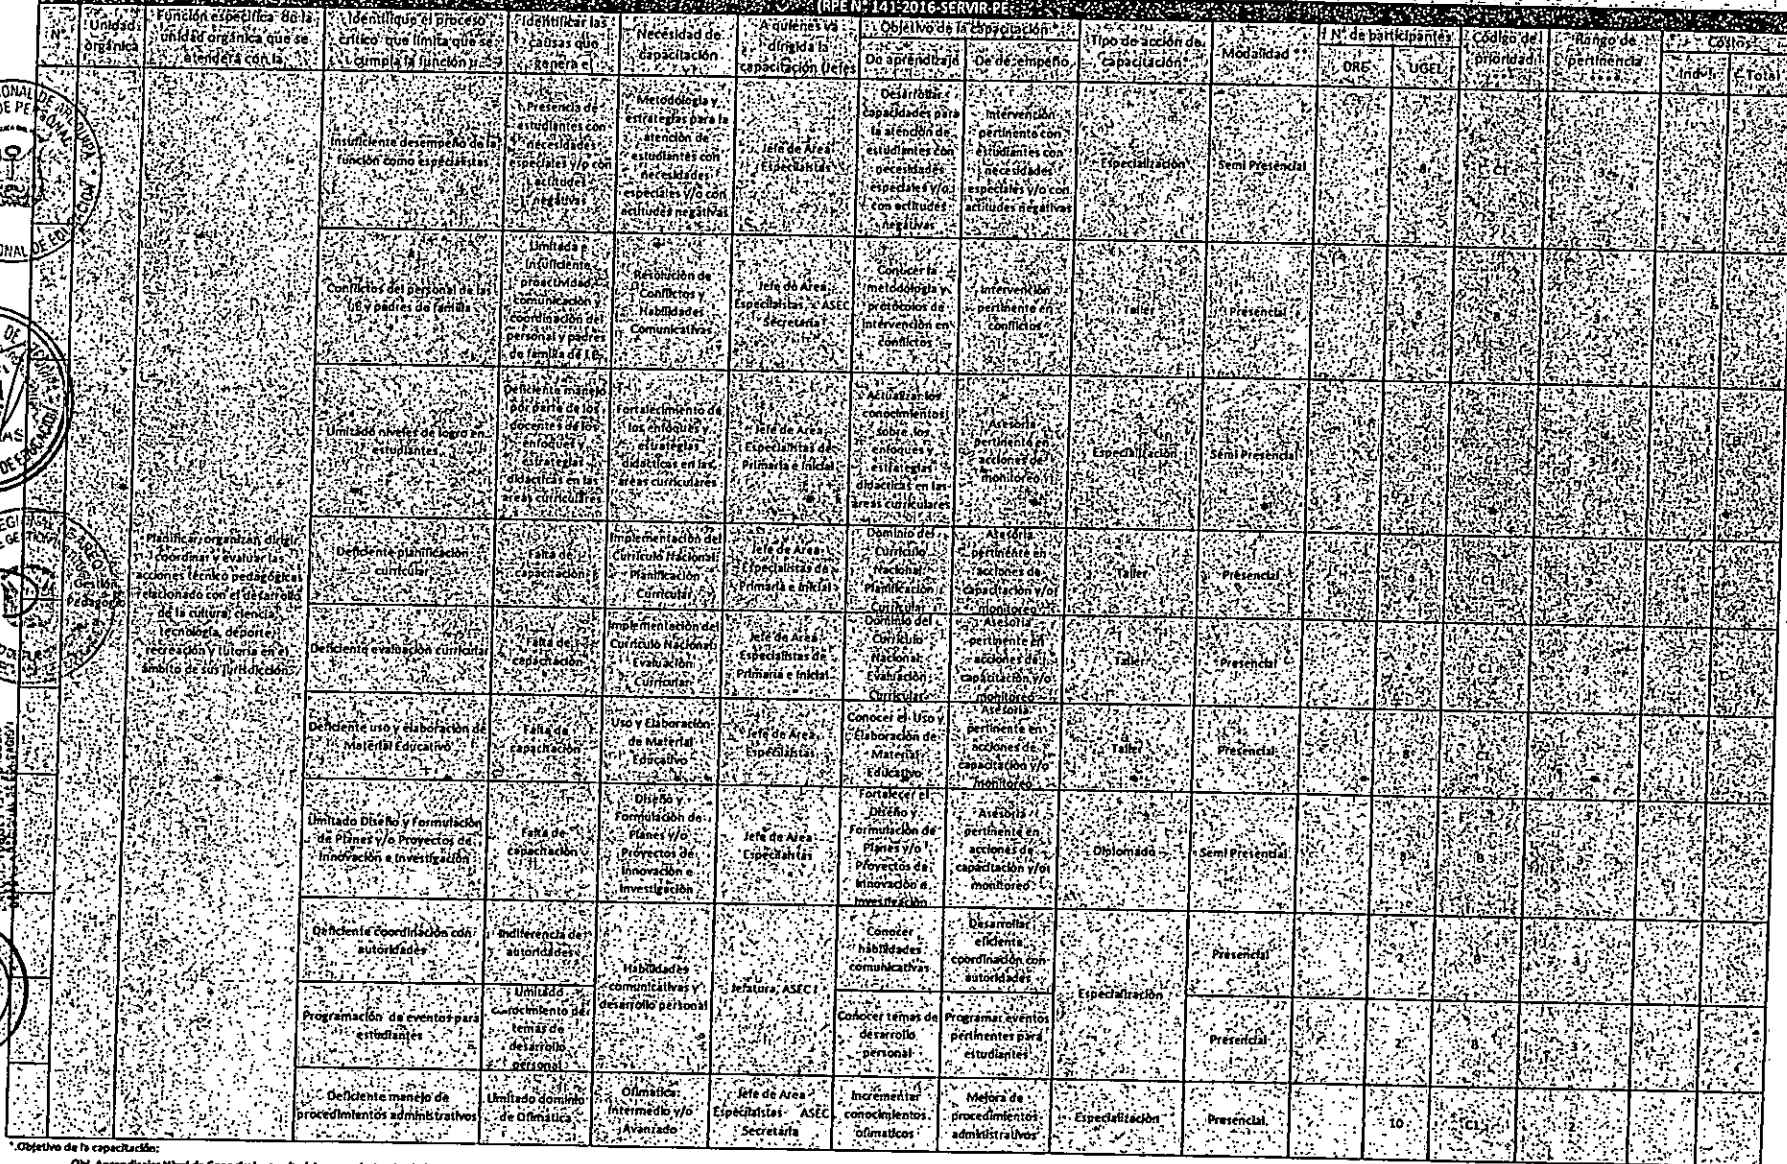 (RPE N° 141-2016-SERVIR-PE
N°
Unidad orgánica
Función específica de la unidad orgánica que se atenderá con la
Identifique el proceso crítico que limita que se cumpla la función
Identificar las causas que genera el
Necesidad de Capacitación
A quienes va dirigida la capacitación (Jefes
Objetivo de la capacitación
De aprendizaje
De desempeño
Tipo de acción de capacitación
Modalidad
N° de participantes
DRE
UGEL
Código de prioridad
Rango de pertinencia
Costos
Ind
Total
Gestión Pedagógic
Planificar, organizar, dirigir, coordinar y evaluar las acciones técnico pedagógicas relacionado con el desarrollo de la cultura, ciencia, tecnología, deporte, recreación y tutoría en el ámbito de sus jurisdicción
Insuficiente desempeño de la función como especialistas
Presencia de estudiantes con necesidades especiales y/o con actitudes negativas
Metodología y estrategias para la atención de estudiantes con necesidades especiales y/o con actitudes negativas
Jefe de Area Especialistas
Desarrollar capacidades para la atención de estudiantes con necesidades especiales y/o con actitudes negativas
Intervención pertinente con estudiantes con necesidades especiales y/o con actitudes negativas
Especialización
Semi Presencial
8
C1
3
Conflictos del personal de las I.E y padres de familia
Limitada e insuficiente proactividad, comunicación y coordinación del personal y padres de familia de I.E.
Resolución de Conflictos y Habilidades Comunicativas
Jefe de Area Especialistas ASEC Secretaria
Conocer la metodología y protocolos de intervención en conflictos
Intervención pertinente en conflictos
Taller
Presencial
8
B
3
Limitado niveles de logro en estudiantes
Deficiente manejo por parte de los docentes de los enfoques y estrategias didácticas en las áreas curriculares
Fortalecimiento de los enfoques y estrategias didácticas en las áreas curriculares
Jefe de Area Especialistas de Primaria e Inicial
Actualizar los conocimientos sobre los enfoques y estrategias didácticas en las áreas curriculares
Asesoría pertinente en acciones de monitoreo
Especialización
Semi Presencial
C1
3
Deficiente planificación curricular
Falta de capacitación
Implementación del Currículo Nacional: Planificación Curricular
Jefe de Area Especialistas de Primaria e Inicial
Dominio del Currículo Nacional: Planificación Curricular
Asesoría pertinente en acciones de capacitación y/o monitoreo
Taller
Presencial
4
C1
3
Deficiente evaluación curricular
Falta de capacitación
Implementación del Currículo Nacional: Evaluación Curricular
Jefe de Area Especialistas de Primaria e Inicial
Dominio del Currículo Nacional: Evaluación Curricular
Asesoría pertinente en acciones de capacitación y/o monitoreo
Taller
Presencial
4
C1
3
Deficiente uso y elaboración de Material Educativo
Falta de capacitación
Uso y Elaboración de Material Educativo
Jefe de Area Especialistas
Conocer el Uso y Elaboración de Material Educativo
Asesoría pertinente en acciones de capacitación y/o monitoreo
Taller
Presencial
8
C1
3
Limitado Diseño y Formulación de Planes y/o Proyectos de Innovación e Investigación
Falta de capacitación
Diseño y Formulación de Planes y/o Proyectos de Innovación e Investigación
Jefe de Area Especialistas
Fortalecer el Diseño y Formulación de Planes y/o Proyectos de Innovación e Investigación
Asesoría pertinente en acciones de capacitación y/o monitoreo
Diplomado
Semi Presencial
8
B
3
Deficiente coordinación con autoridades
Indiferencia de autoridades
Habilidades comunicativas y desarrollo personal
Jefatura, ASEC
Conocer habilidades comunicativas
Desarrollar eficiente coordinación con autoridades
Especialización
Presencial
2
B
3
Programación de eventos para estudiantes
Limitado conocimiento de temas de desarrollo personal
Conocer temas de desarrollo personal
Programar eventos pertinentes para estudiantes
Presencial
2
B
3
Deficiente manejo de procedimientos administrativos
Limitado dominio de Ofimática
Ofimática: Intermedio y/o Avanzado
Jefe de Area Especialistas ASEC Secretaria
Incrementar conocimientos ofimaticos
Mejora de procedimientos administrativos
Especialización
Presencial
10
C1
2
Objetivo de la capacitación: